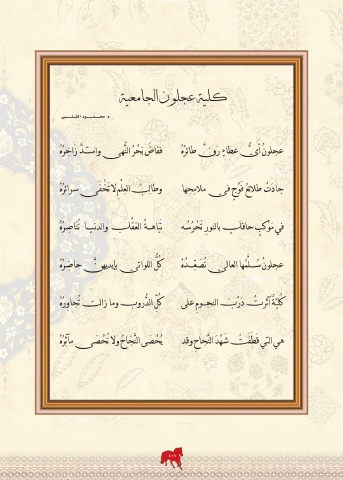 كلية عجلون الجامعية
د. محمود الشلبي
عجلونُ أيُّ عطاءٍ رفَّ طائرُهُ ففاضَ بَحْرُ النُّهى وامتدَّ زاخِرُهُ
جادَتْ طلائعُ فَوْجٍ في ملامحها وطالبُ العلْمِ لا تَخْفى سرائرُهُ
في مَوْكبٍ حافلٍ بالنورِ تَحْرُسُه نَباهةُ العَقْلِ والدنيا تُناصِرُهُ
عجلونُ سُلَّمُها العالي تُصَعِّدُهُ كُلُّ اللواتي بأيديهنَّ حاضرُهُ
كُليّةٌ آثرتْ دَرْبَ النجومِ على كُلِّ الدُّروبِ وما زالتْ تُجاوِرُهُ
هي التي قَطَفَتْ شَهْدَ النَّجاحِ وقد يُحْصَى النَّجَاحُ ولا تُحْصَى مآثرُهُ